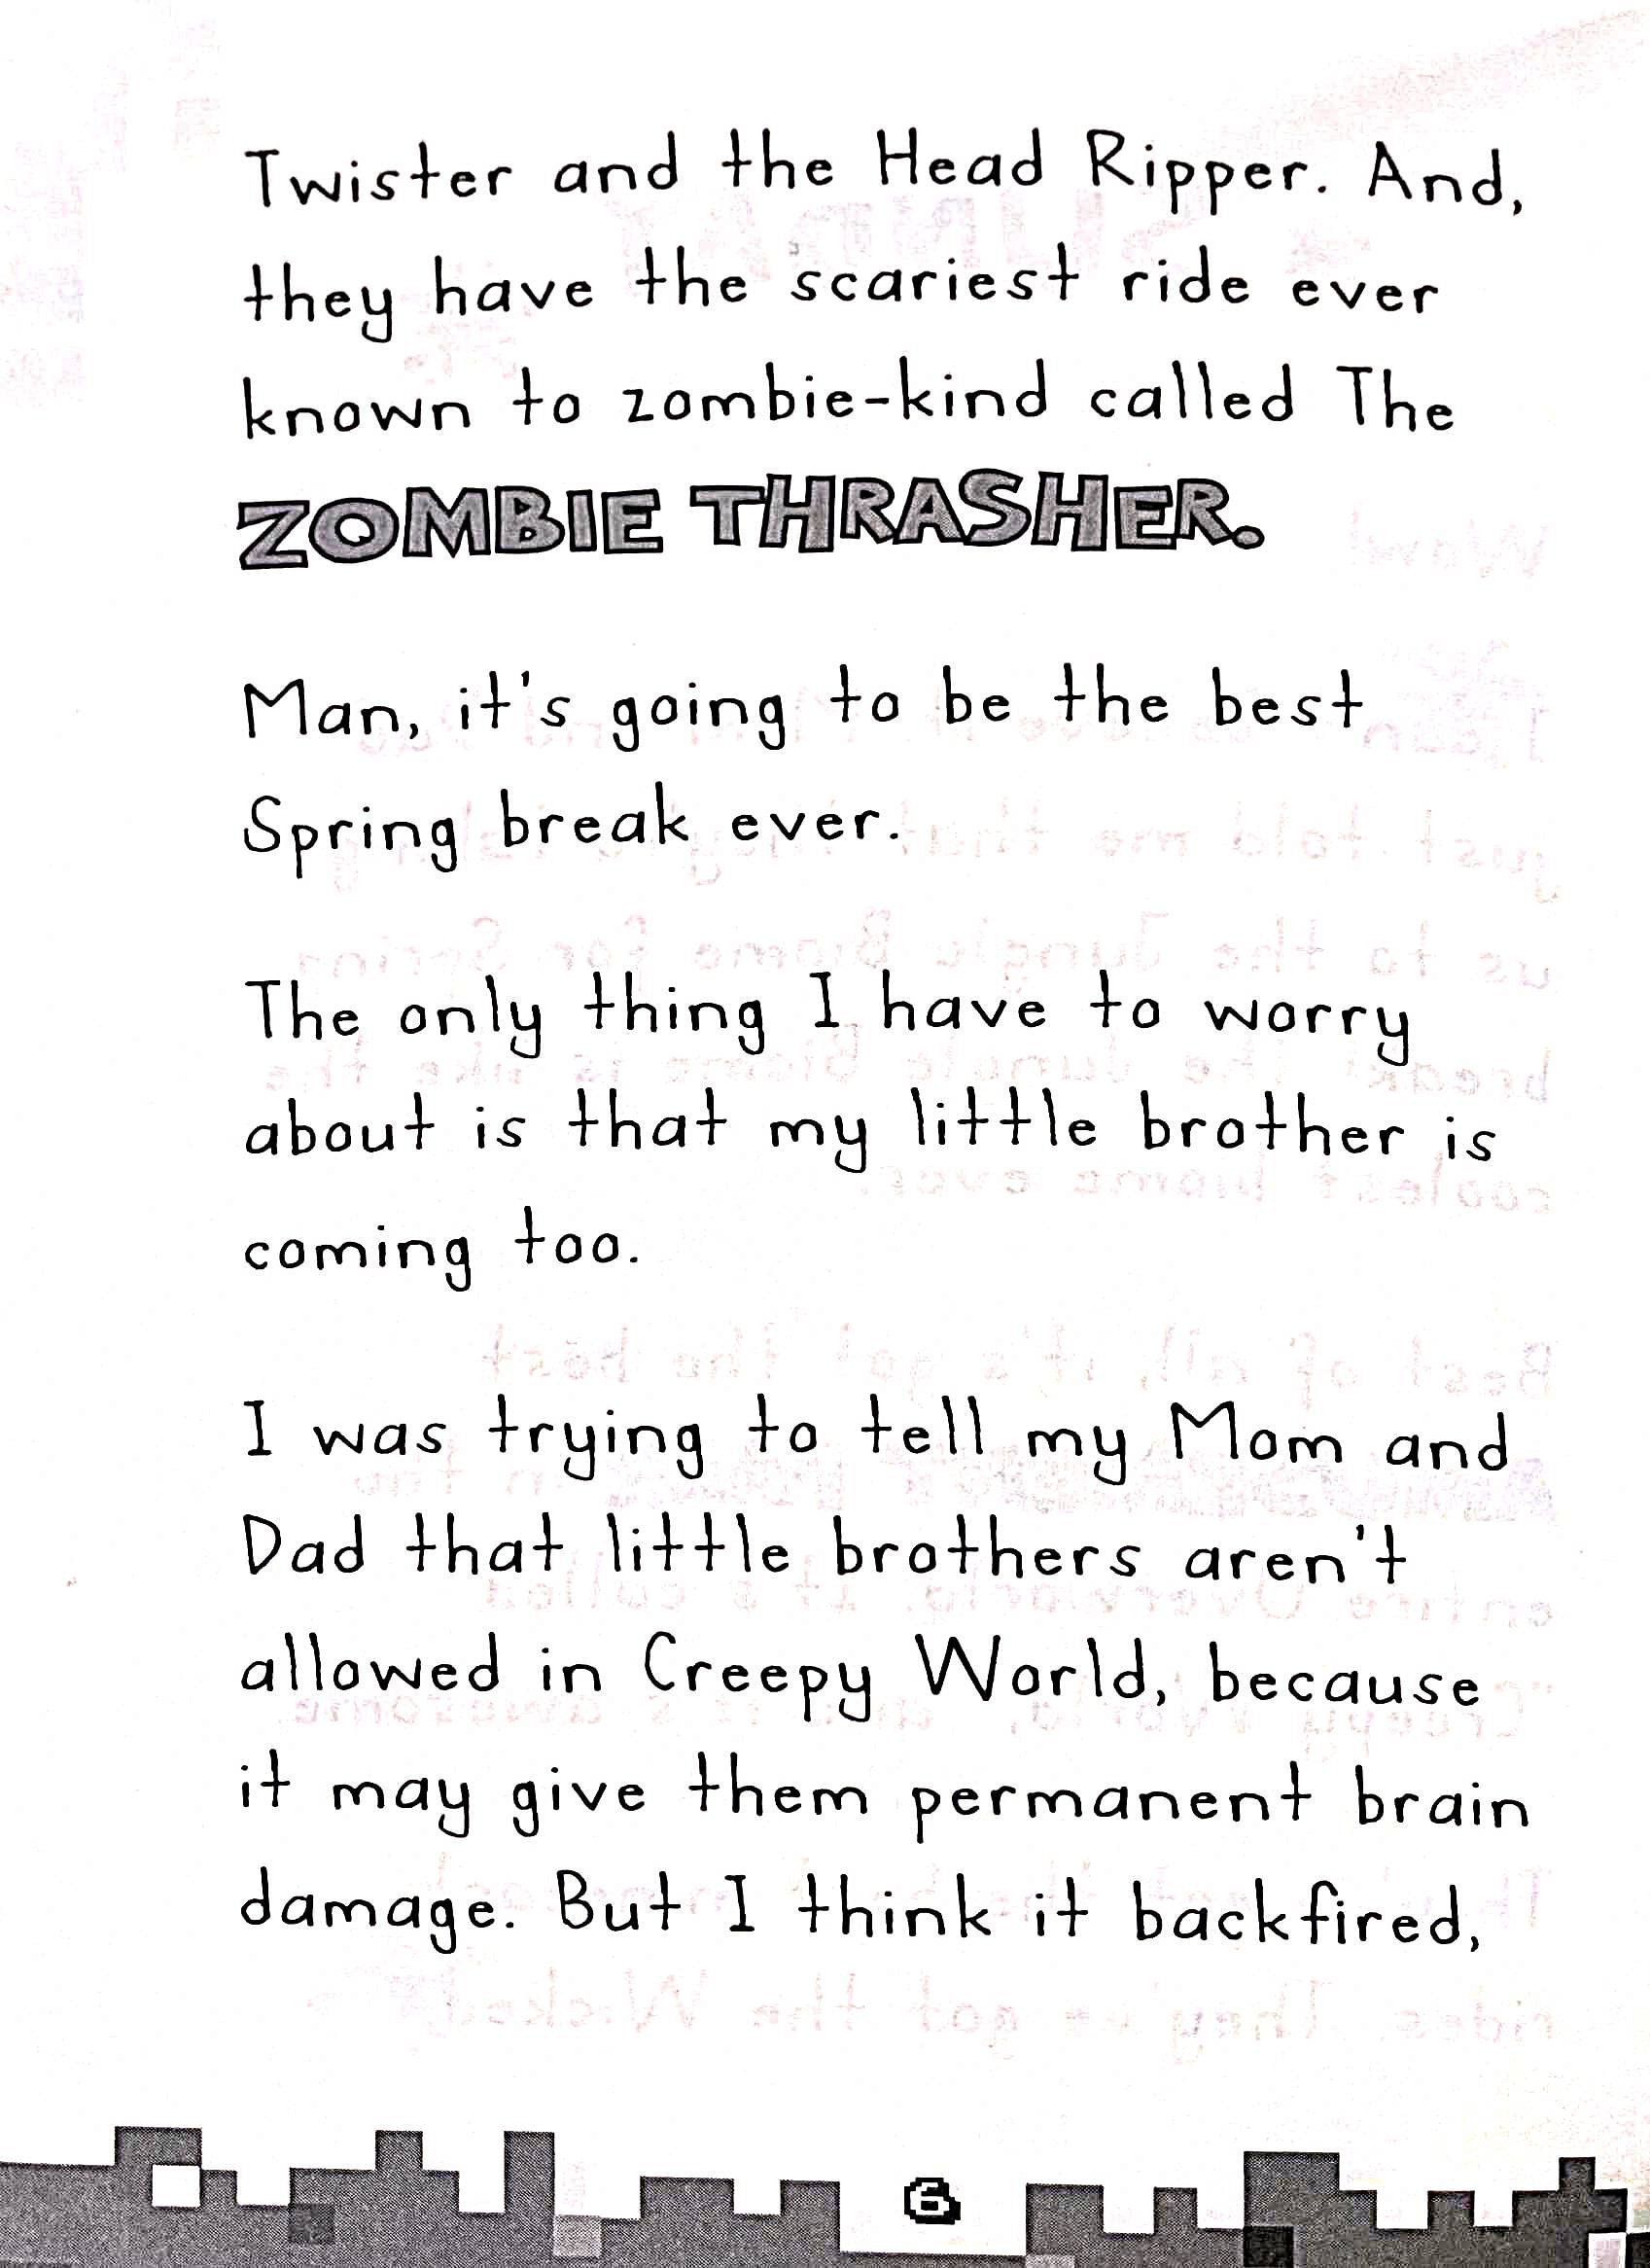 Twister and the Head Ripper. And,
they have the scariest ride ever
known to zombie-kind called The
ZOMBIE THRASHER.
Man, it's going to be the best
Spring break ever.
The only thing I have to worry
about is that my little brother is
coming too.
I was trying to tell my Mom and
Dad that little brothers aren't
allowed in Creepy World, because
it may give them permanent brain
damage. But I think it backfired,
6